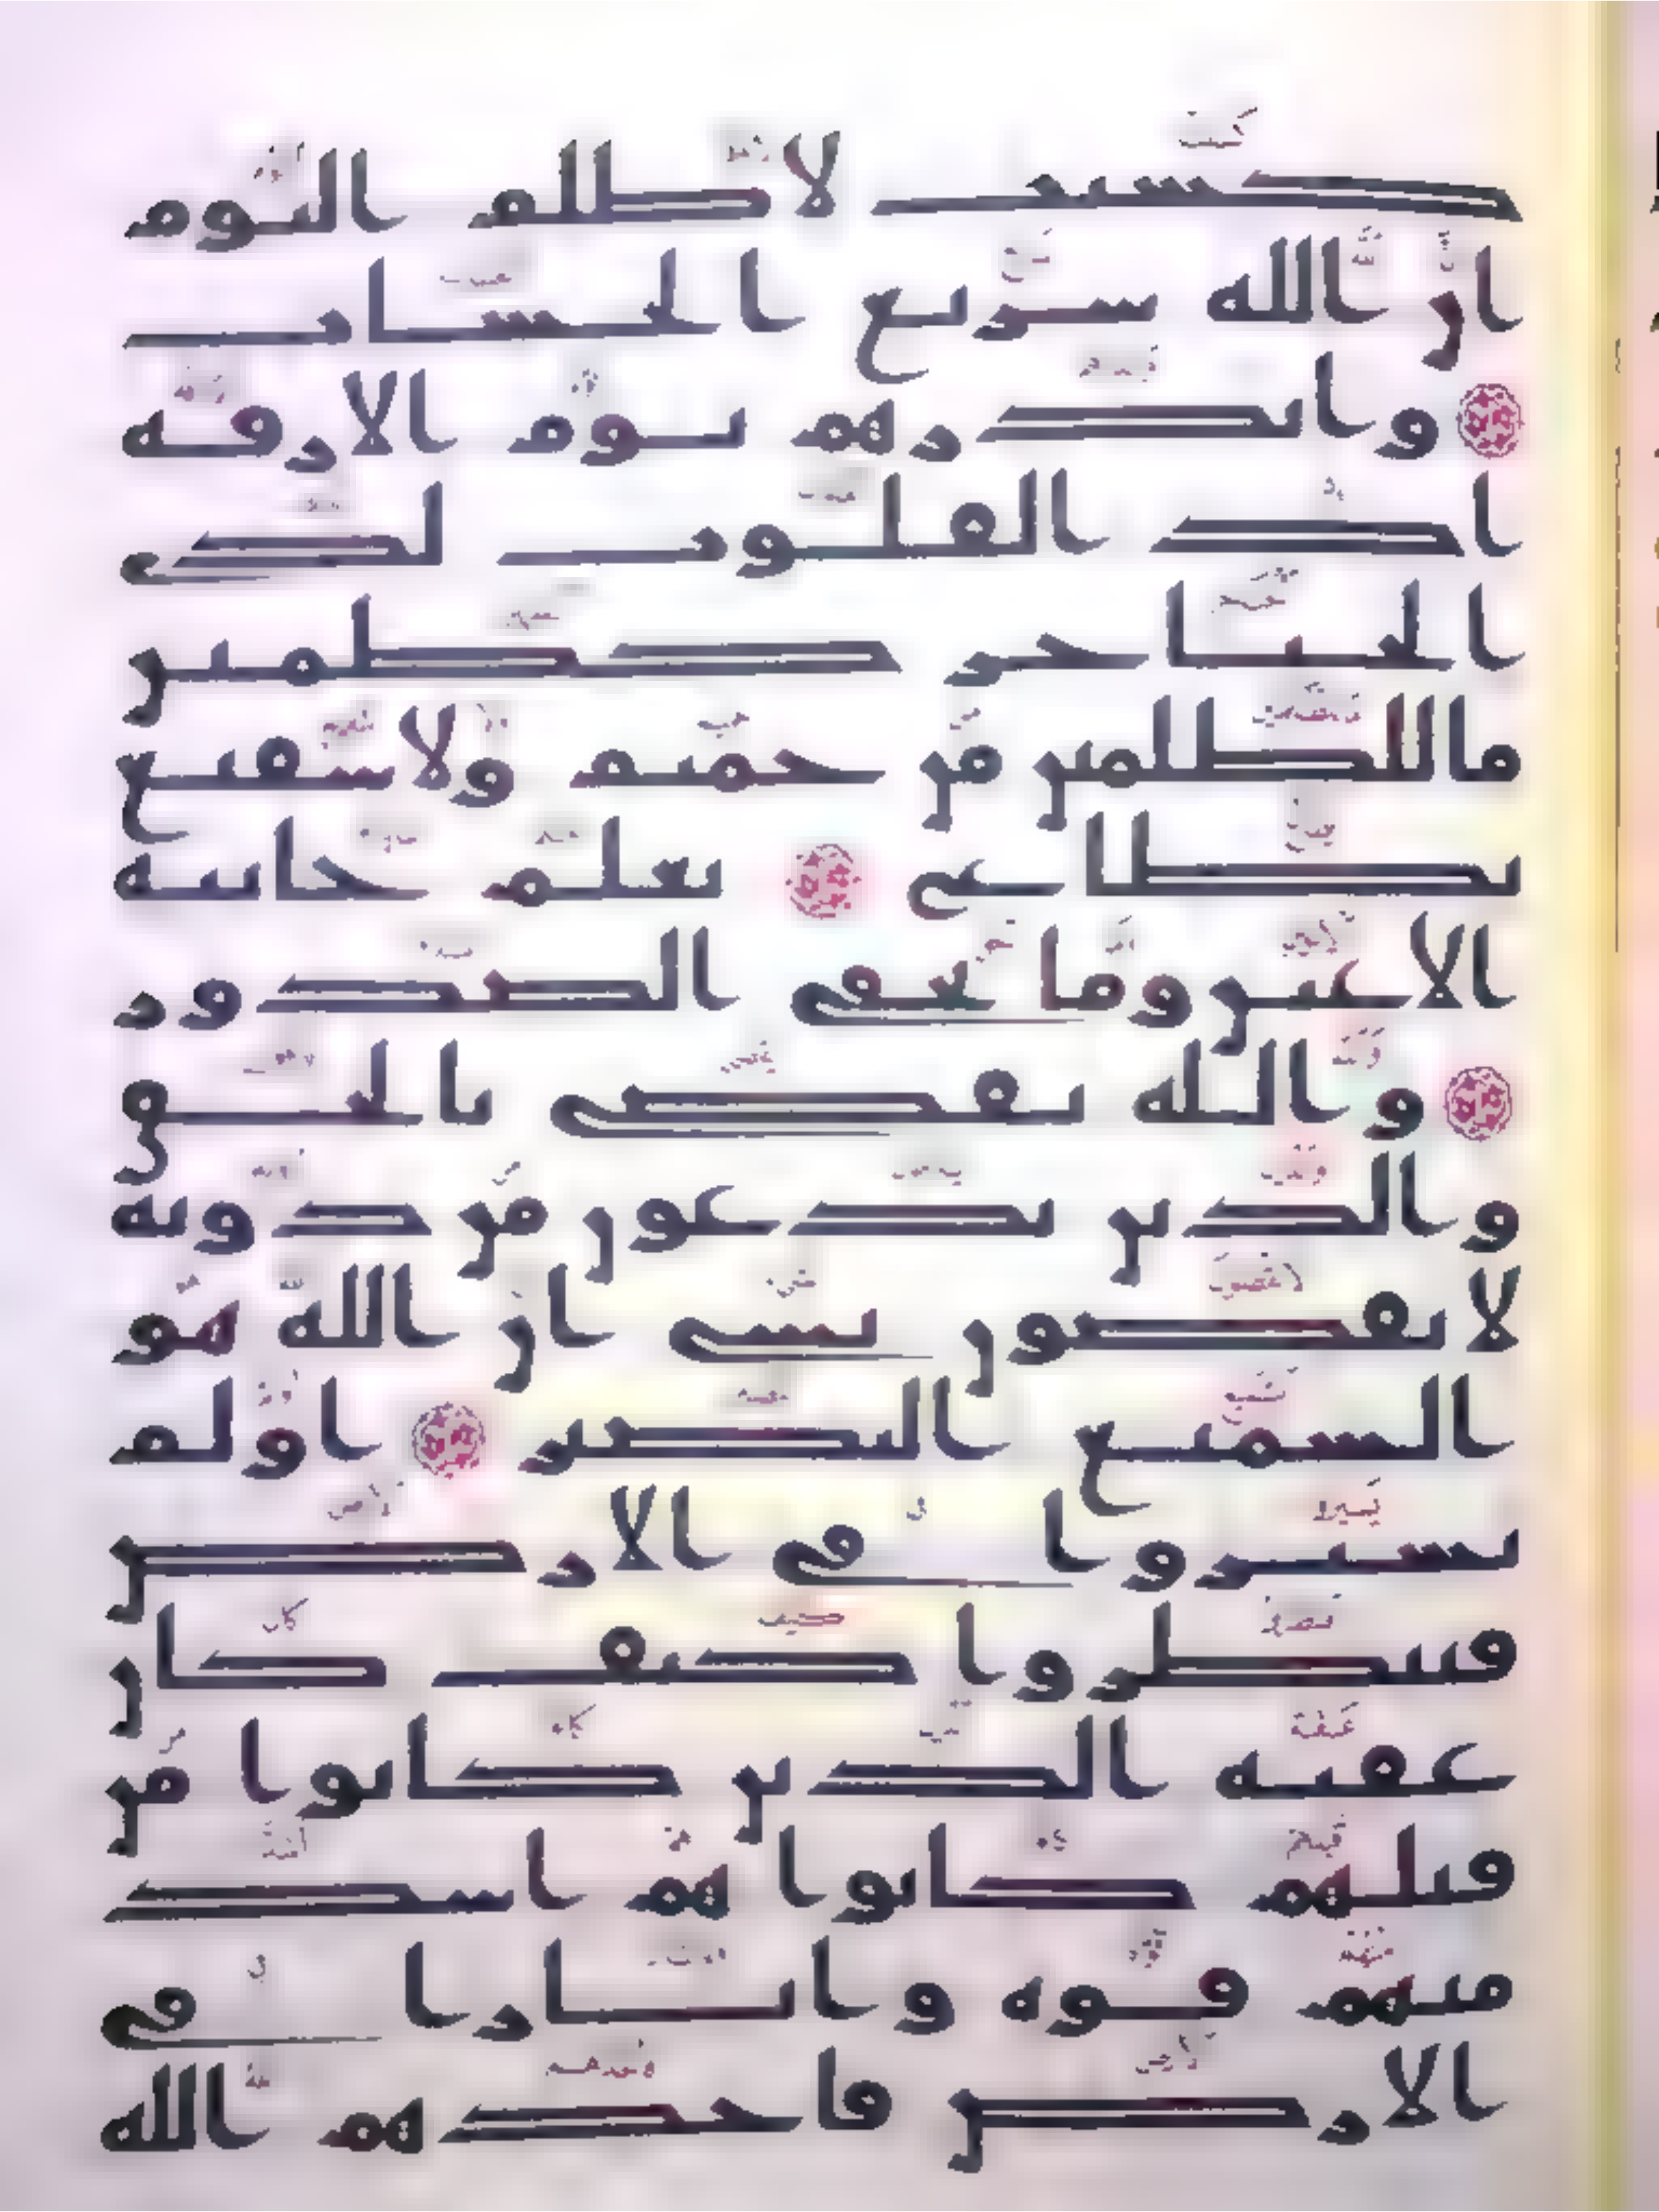 كسبت لا ظلم اليوم
ان الله سريع الحساب
وانذرهم يوم الازفه
اذ القلوب لدى
الحناجر كظمين
ما للظلمين من حميم ولا شفيع
يطاع يعلم خاينه
الاعين وما تخفى الصدور
والله يقضى بالحق
والذين يدعون من دونه
لا يقضون بشى ان الله هو
السميع البصير اولم
يسيروا فى الارض
فينظروا كيف كان
عقبه الذين كانوا من
قبلهم كانوا هم اشد
منهم قوه واثارا فى
الارض فاخذهم الله